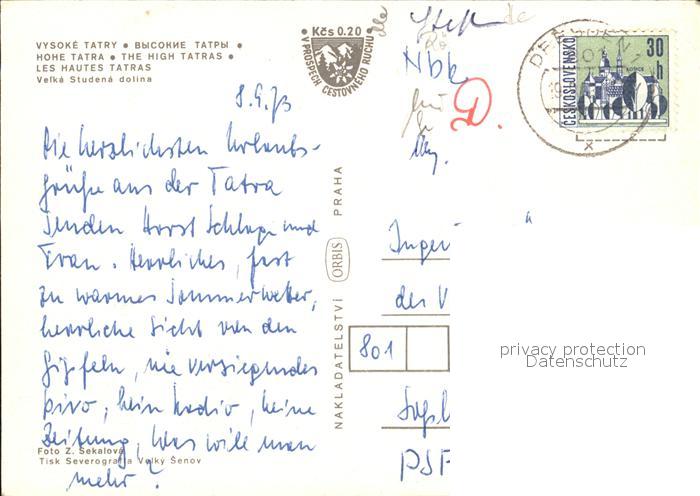 VYSOKÉ TATRY • ВЫСОКИЕ ТАТРЫ •
HOHE TATRA • THE HIGH TATRAS •
LES HAUTES TATRAS
Veľká Studená dolina
Kčs 0.20
V PROSPĚCH CESTOVNÉHO RUCHU
8.9.73
Die herzlichsten Urlaubs-
grüße aus der Tatra
senden Horst Schlage und
Frau. Herrliches, fast
zu warmes Sommerwetter,
herrliche Sicht von den
Gipfeln, nie versiegendes
pivo, kein Radio, keine
Zeitung, was will man
mehr?
Foto Z. Sekalová
Tisk Severografia Velký Šenov
NAKLADATELSTVÍ ORBIS PRAHA
Nbk
D.
ČESKOSLOVENSKO
30 h
DRESDEN
x
Ingen
des V
801
PSF
privacy protection
Datenschutz